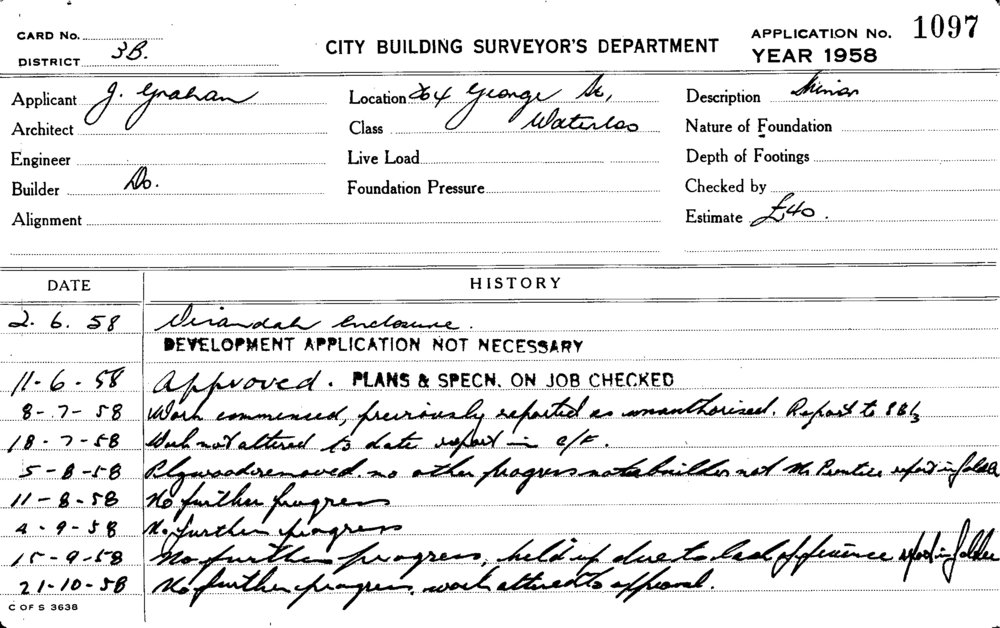 CARD No.
CITY BUILDING SURVEYOR'S DEPARTMENT
APPLICATION No. 1097
DISTRICT 3B.
YEAR 1958
Applicant J. Graham
Location 264 George St,
Description Minor
Architect
Class Waterloo
Nature of Foundation
Engineer
Live Load
Depth of Footings
Builder Do.
Foundation Pressure
Checked by
Alignment
Estimate £40.
DATE HISTORY
2. 6. 58 Verandah enclosure.
DEVELOPMENT APPLICATION NOT NECESSARY
11-6-58 Approved. PLANS & SPECN. ON JOB CHECKED
8-7-58 Work commenced, previously reported as unauthorised. Report to
18-7-58 Work not altered to date report in c/f.
5-8-58 Plywood removed. no other progress not a builder not report in folder
11-8-58 No further progress
4-9-58 No further progress
15-9-58 No further progress, held up due to lack of finance report in folder
21-10-58 No further progress, work altered to approval.
C OF S 3638